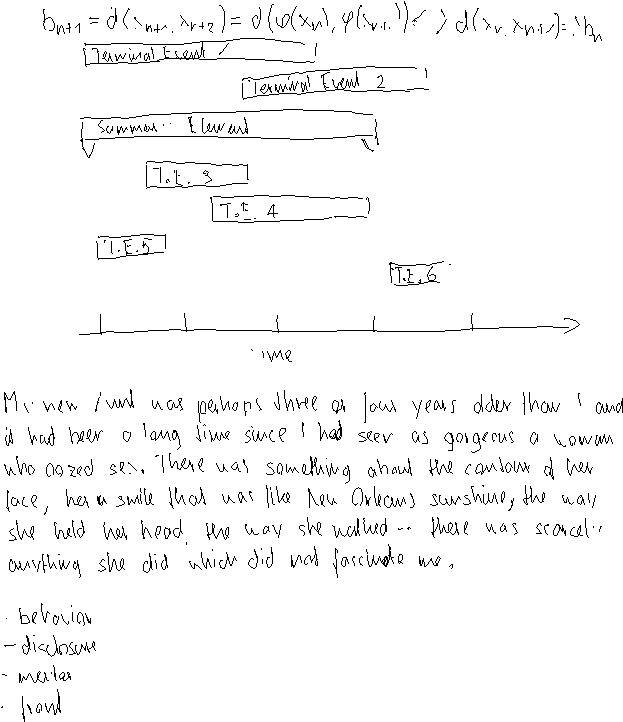 b_{n+1} = d(x_{n+1}, x_{n+2}) = d(φ(x_n), φ(x_{n+1})) < d(x_n, x_{n+1}) = b_n
Terminal Event 1
Terminal Event 2
Summary Element
T.E. 3
T.E. 4
T.E. 5
T.E. 6
Time
My new aunt was perhaps three or four years older than I and
it had been a long time since I had seen as gorgeous a woman
who oozed sex. There was something about the contour of her
face, her smile that was like New Orleans sunshine, the way
she held her head, the way she walked -- there was scarcely
anything she did which did not fascinate me.
- behavior
- disclosure
- mental
- front